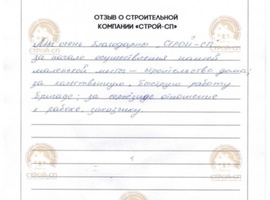 ОТЗЫВ О СТРОИТЕЛЬНОЙ
КОМПАНИИ «СТРОЙ-СП»
Мы очень благодарны "СТРОЙ-СП"
за начало осуществления нашей
маленькой мечты – строительство дома;
за качественную, быструю работу
бригаде; за хорошее отношение
к работе, заказчику.
СТРОЙ-СП
СТРОЙ-СП